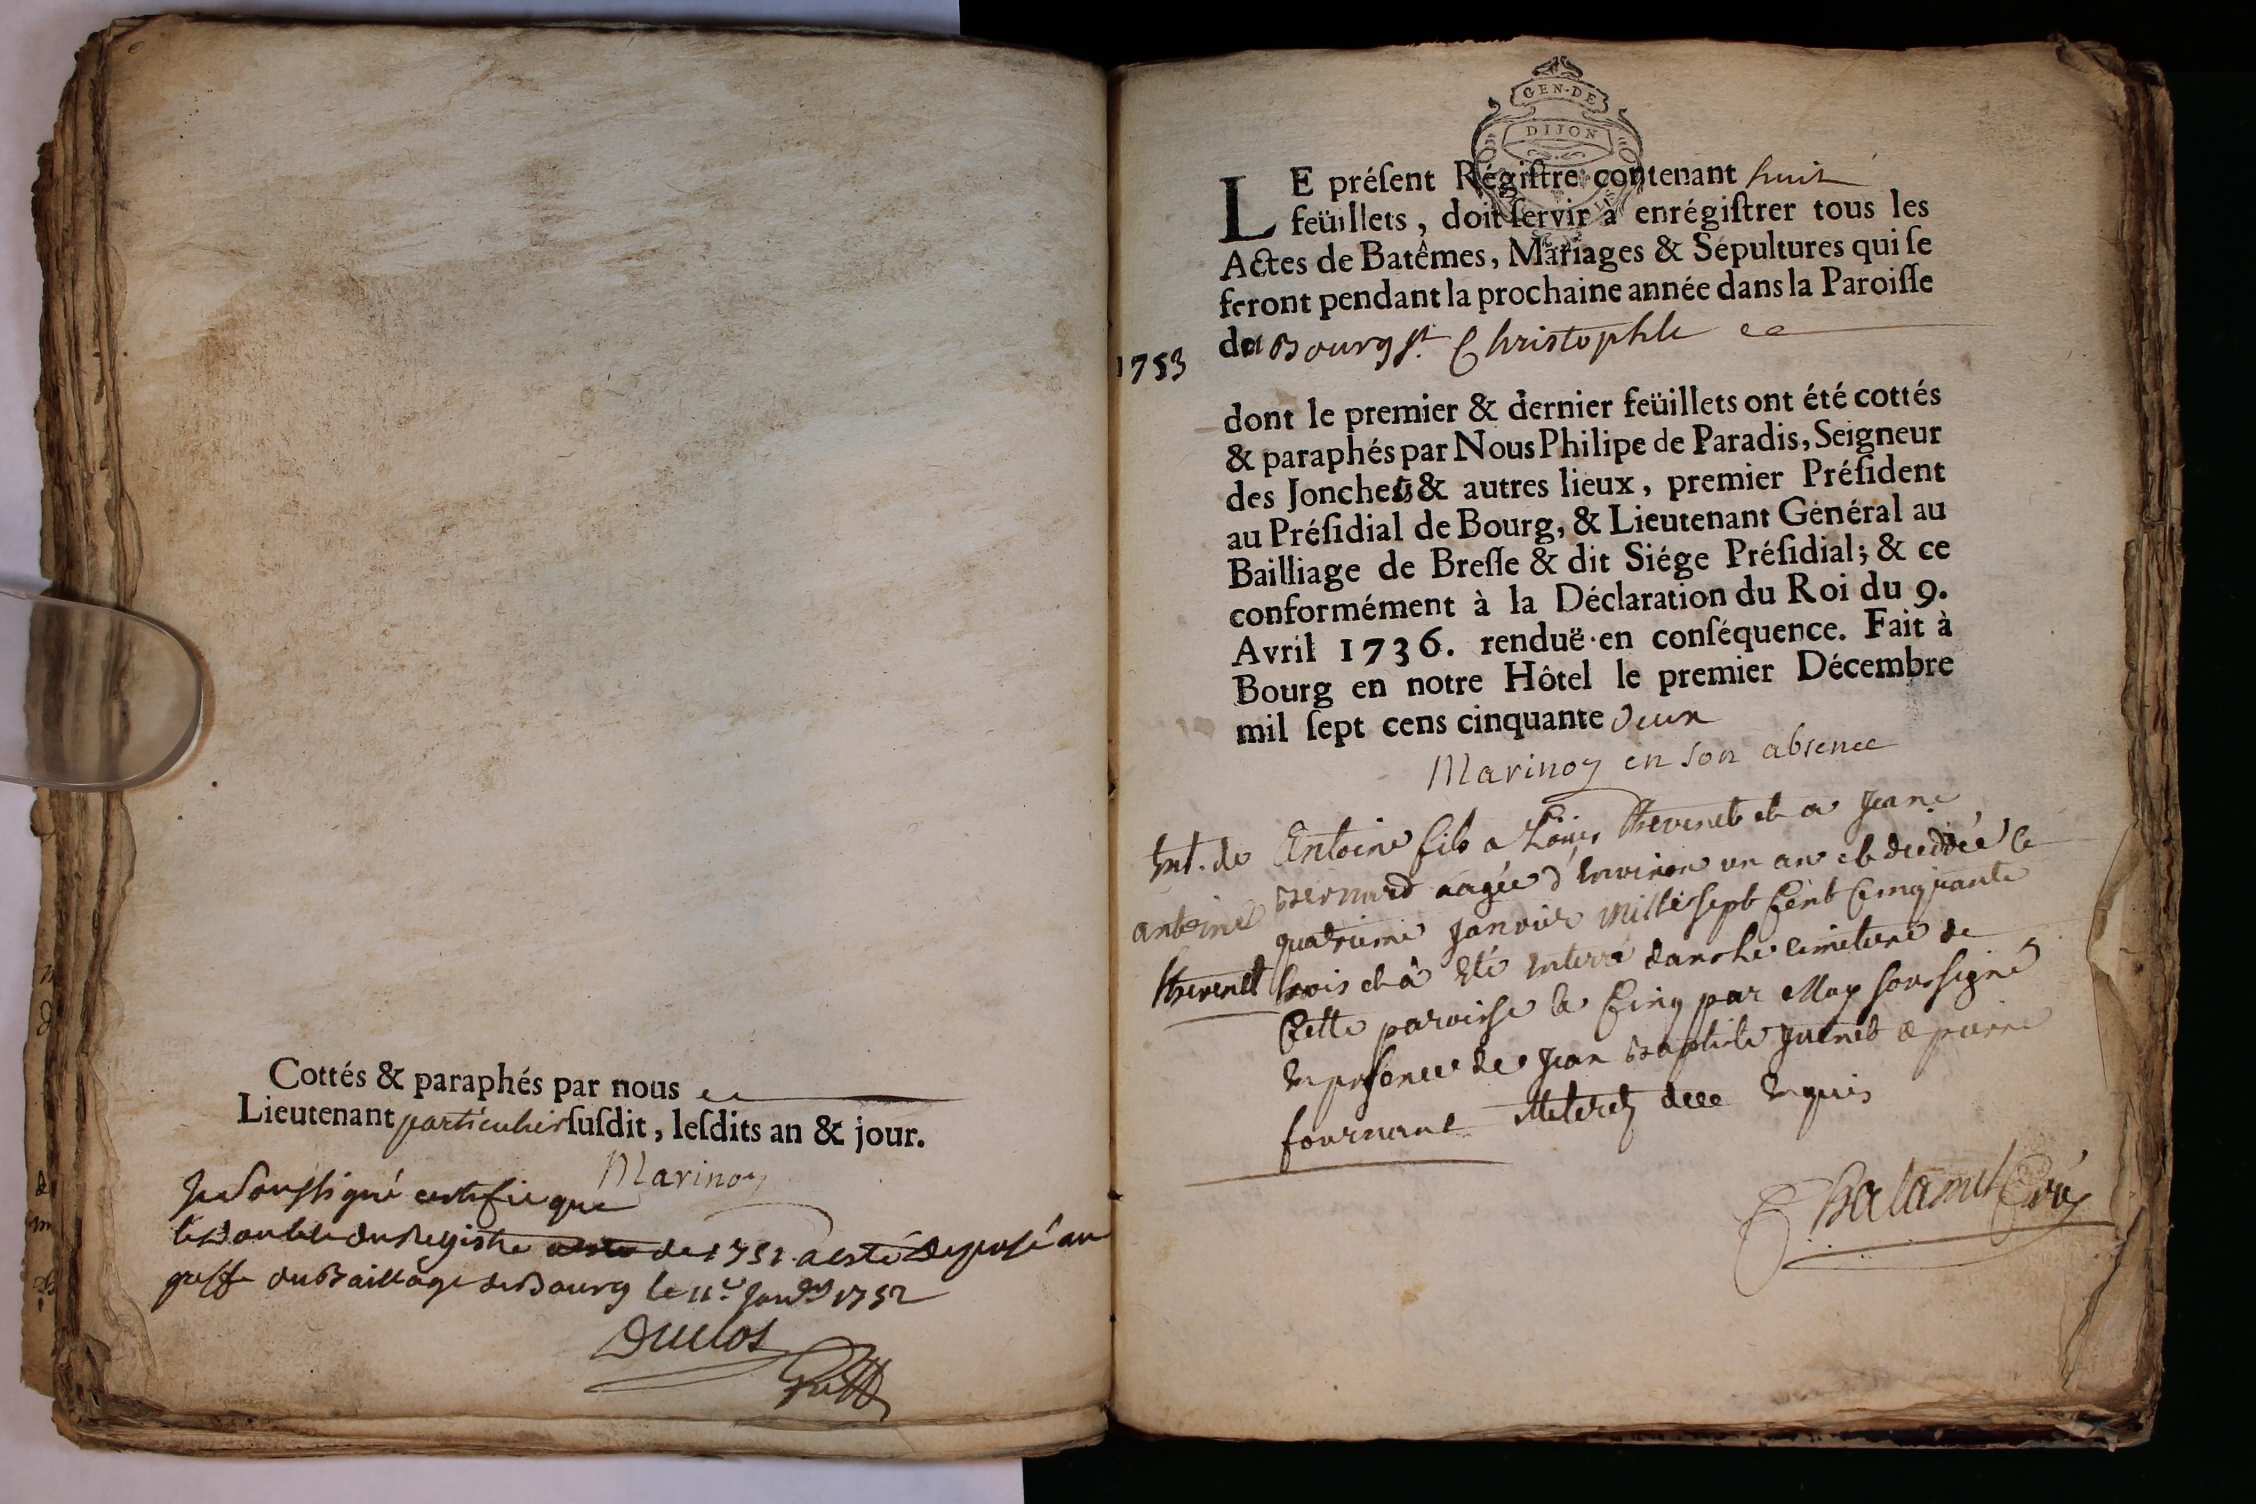 Cottés & paraphés par nous
Lieutenant particulier ſuſdit, leſdits an & jour.
Marinoy
Je Soussigné certifie que
le Double du Registre de 1751 a esté deposé au
greffe du Bailliage de Bourg le 11e Janv 1752
Duclos
GEN·DE
DIJON
LE préſent Régiſtre contenant huit
feüillets, doit ſervir à enrégiſtrer tous les
Actes de Batêmes, Mariages & Sépultures qui ſe
feront pendant la prochaine année dans la Paroiſſe
de Bourg st Christophle
1753
dont le premier & dernier feüillets ont été cottés
& paraphés par Nous Philipe de Paradis, Seigneur
des Jonches & autres lieux, premier Préſident
au Préſidial de Bourg, & Lieutenant Général au
Bailliage de Breſſe & dit Siége Préſidial; & ce
conformément à la Déclaration du Roi du 9.
Avril 1736. renduë en conſéquence. Fait à
Bourg en notre Hôtel le premier Décembre
mil ſept cens cinquante deux
Marinoy en son absence
Ent. de
antoine
thevenet
Antoine fils a Loüis thevenet et a Jeane
Bernard aagée d'environ un an et decedée le
quatrieme Janvier mille sept Cent Cinquante
trois et a été enterré dans le cimetiere de
Cette paroisse le Cinq par Moy soussigné
en presence de Jean Baptiste et pierre
enquis
Curé